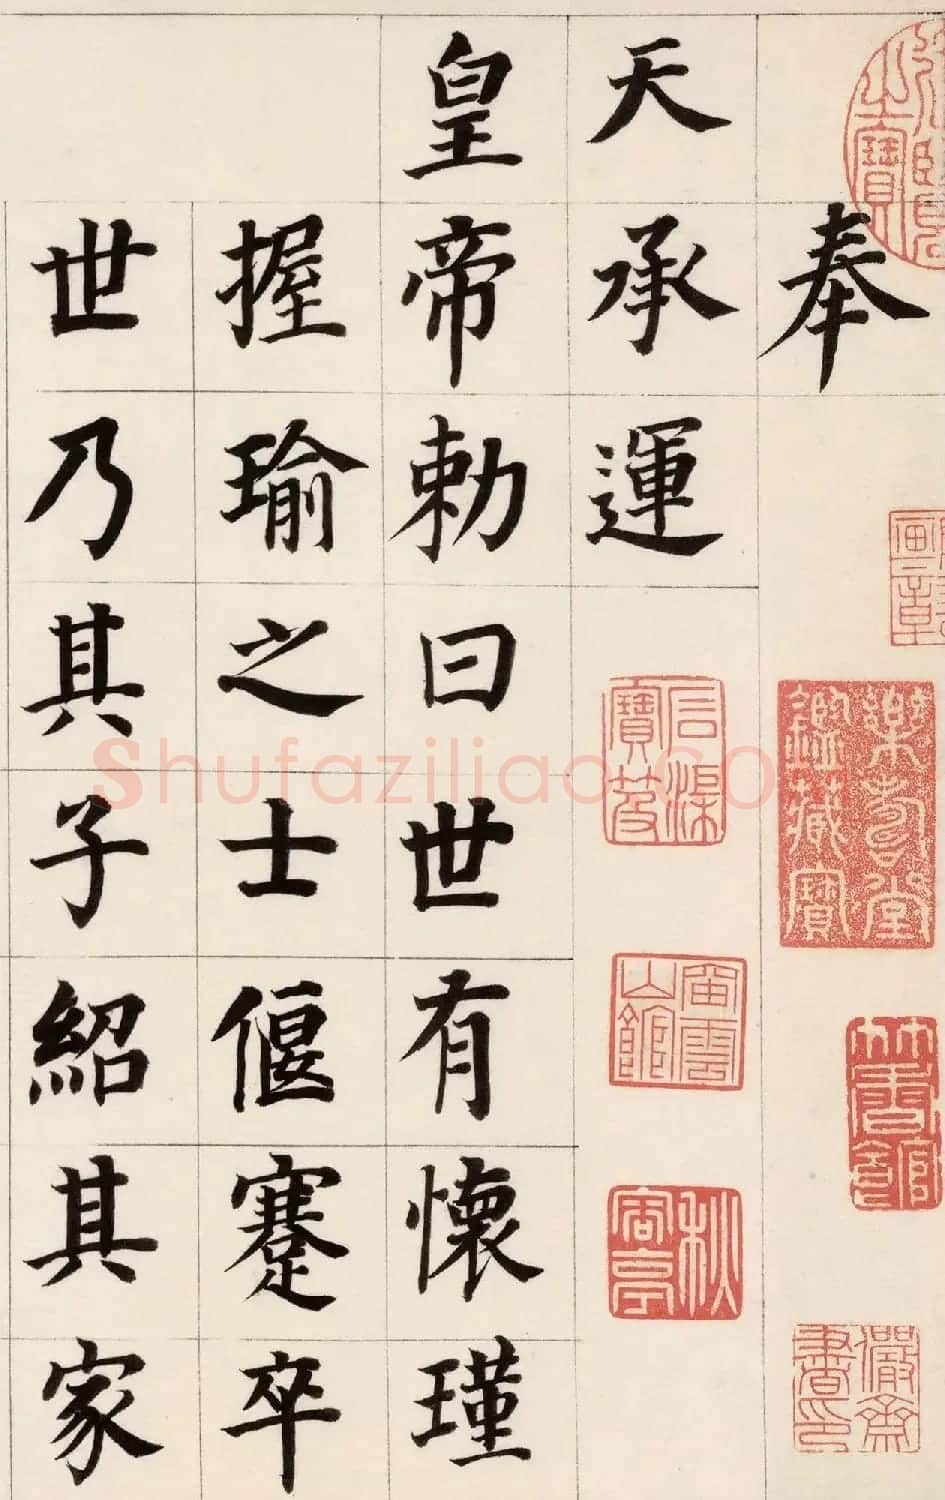 奉
天承運
皇帝勅曰世有懷瑾
握瑜之士偃蹇卒
世乃其子紹其家
shufaziliao.com
寶笈
山館
秋